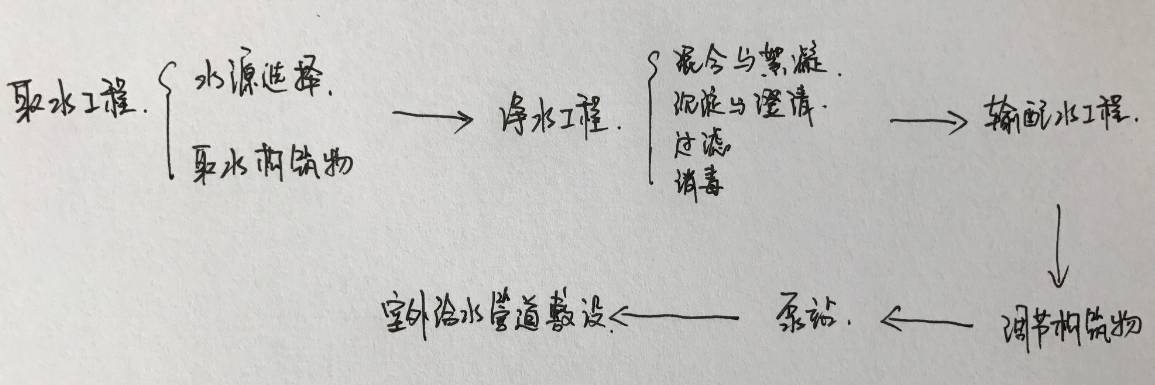 取水工程.
水源选择.
取水构筑物
净水工程.
混合与絮凝.
沉淀与澄清.
过滤
消毒
输配水工程.
调节构筑物
泵站.
室外给水管道敷设.